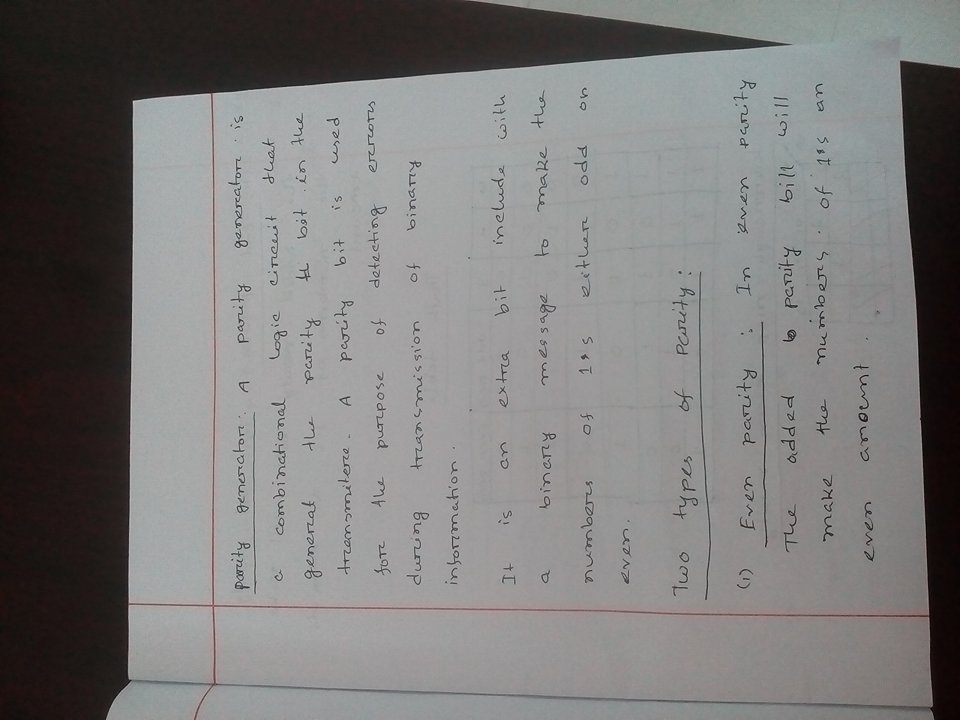 parity generator: A parity generator is
a combinational logic circuit that
generat the parity bit in the
transmitere. A parity bit is used
for the purpose of detecting errors
during transmission of binary
information.
It is an extra bit include with
a binary message to make the
numbers of 1's either odd or
even.
Two types of parity:
(1) Even parity: In even parity
The added parity bill will
make the numbers of 1's an
even amount.